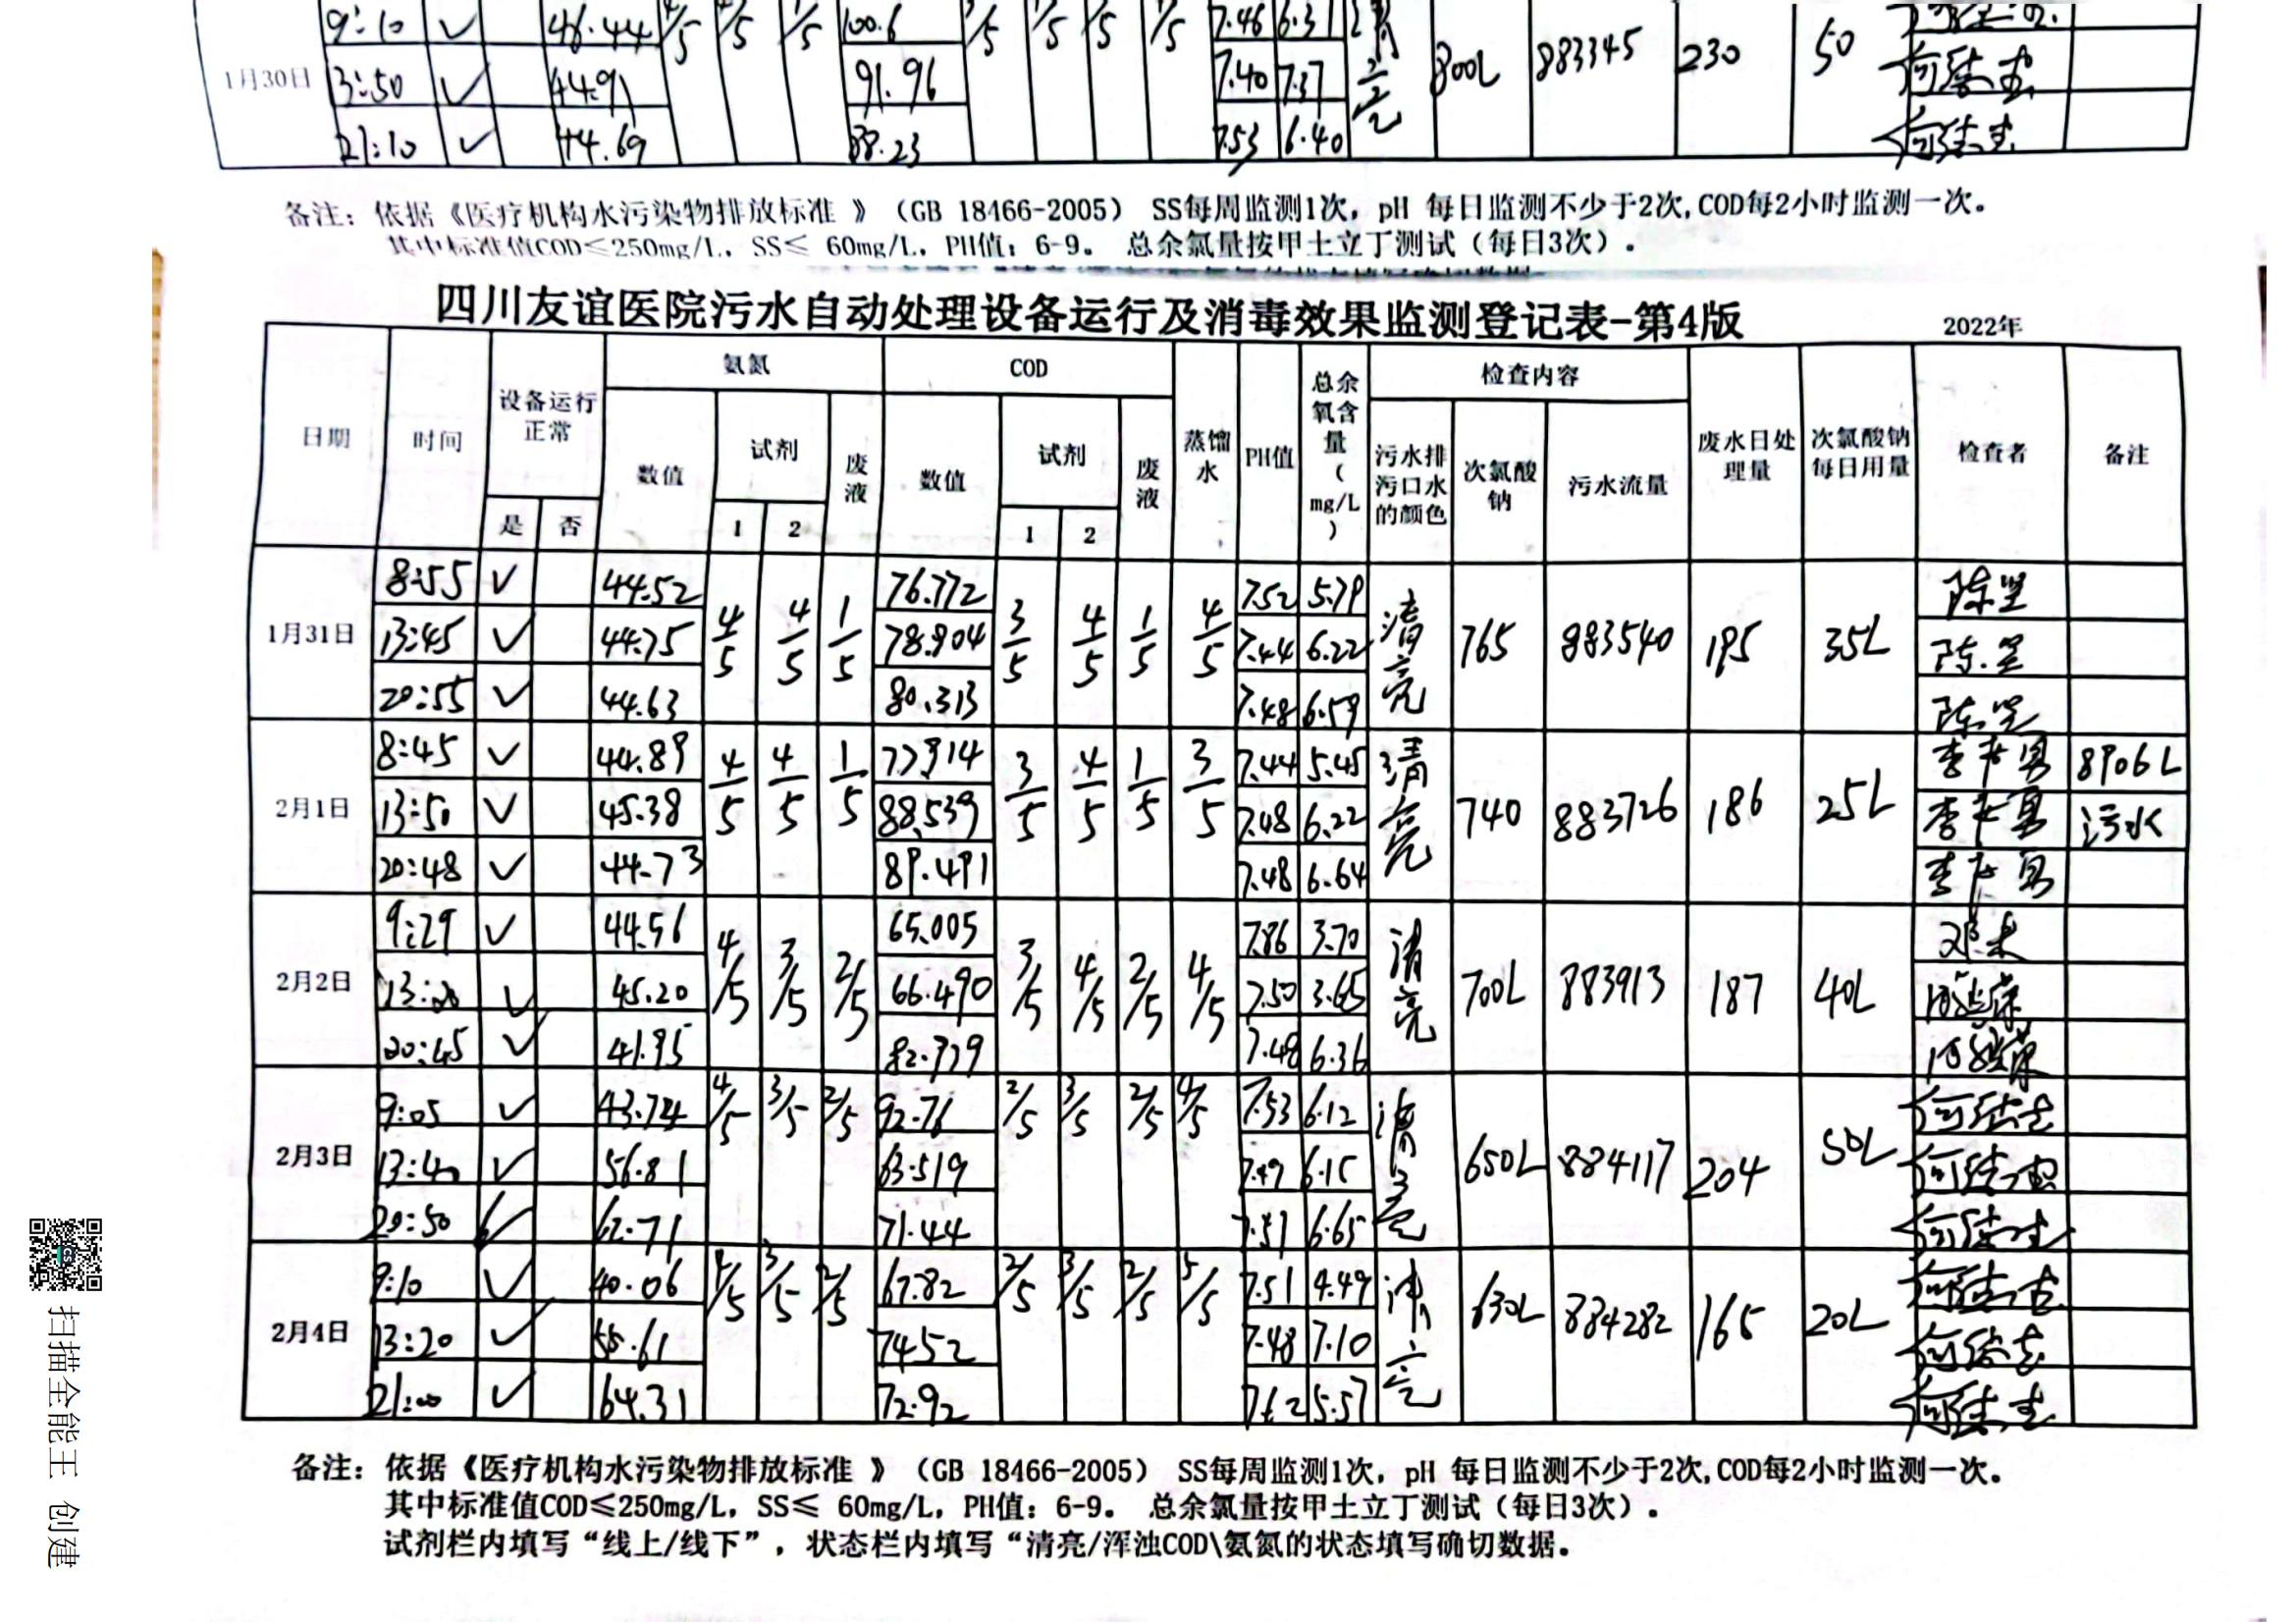 9:10 ✓ 46.44 4/5 4/5 1/5 100.6 3/5 1/5 1/5 7.46 6.31
1月30日 13:50 ✓ 44.91 91.96 7.40 7.37 清亮 800L 883345 230 50
21:10 ✓ 44.69 88.23 7.53 6.40
备注：依据《医疗机构水污染物排放标准 》（GB 18466-2005） SS每周监测1次，pH 每日监测不少于2次,COD每2小时监测一次。
其中标准值COD≤250mg/L，SS≤ 60mg/L，PH值：6-9。 总余氯量按甲土立丁测试（每日3次）.
四川友谊医院污水自动处理设备运行及消毒效果监测登记表-第4版 2022年
日期 时间 设备运行正常 氨氮 COD 蒸馏水 PH值 总余氧含量（mg/L） 检查内容 废水日处理量 次氯酸钠每日用量 检查者 备注
是 否 数值 试剂 废液 数值 试剂 废液 污水排污口水的颜色 次氯酸钠 污水流量
1 2 1 2
8:55 ✓ 44.52 76.772 7.52 5.79 陈坚
1月31日 13:45 ✓ 44.75 4/5 4/5 1/5 78.904 3/5 4/5 1/5 4/5 7.44 6.22 清亮 765 883540 195 35L 陈坚
20:55 ✓ 44.63 80.313 7.48 6.59 陈坚
8:45 ✓ 44.89 77.914 7.44 5.45 8906L
2月1日 13:50 ✓ 45.38 4/5 4/5 1/5 88.539 3/5 4/5 1/5 3/5 7.48 6.22 清亮 740 883726 186 25L 污水
20:48 ✓ 44.73 89.491 7.48 6.64
9:29 ✓ 44.56 65.005 7.86 3.70
2月2日 13:20 ✓ 45.20 4/5 3/5 2/5 66.490 3/5 4/5 2/5 4/5 7.50 3.65 清亮 700L 883913 187 40L
20:45 ✓ 41.95 82.939 7.48 6.36
9:05 ✓ 43.74 4/5 3/5 2/5 92.76 2/5 3/5 2/5 4/5 7.53 6.12
2月3日 13:40 ✓ 56.81 63.519 7.49 6.15 清亮 650L 884117 204 50L
20:50 ✓ 62.71 71.44 7.51 6.65
9:10 ✓ 40.06 4/5 3/5 2/5 67.82 2/5 3/5 2/5 5/5 7.51 4.49
2月4日 13:20 ✓ 55.61 74.52 7.48 7.10 清亮 630L 884282 165 20L
21:00 ✓ 64.31 72.92 7.62 5.57
备注：依据《医疗机构水污染物排放标准 》（GB 18466-2005） SS每周监测1次，pH 每日监测不少于2次,COD每2小时监测一次。
其中标准值COD≤250mg/L，SS≤ 60mg/L，PH值：6-9。 总余氯量按甲土立丁测试（每日3次）.
试剂栏内填写“线上/线下”，状态栏内填写“清亮/浑浊COD\氨氮的状态填写确切数据。
扫描全能王 创建